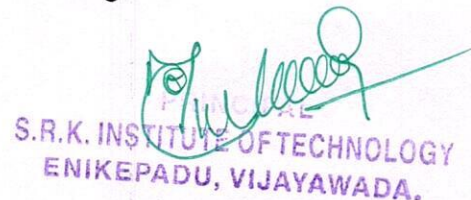 PRINCIPAL
S.R.K. INSTITUTE OF TECHNOLOGY
ENIKEPADU, VIJAYAWADA.